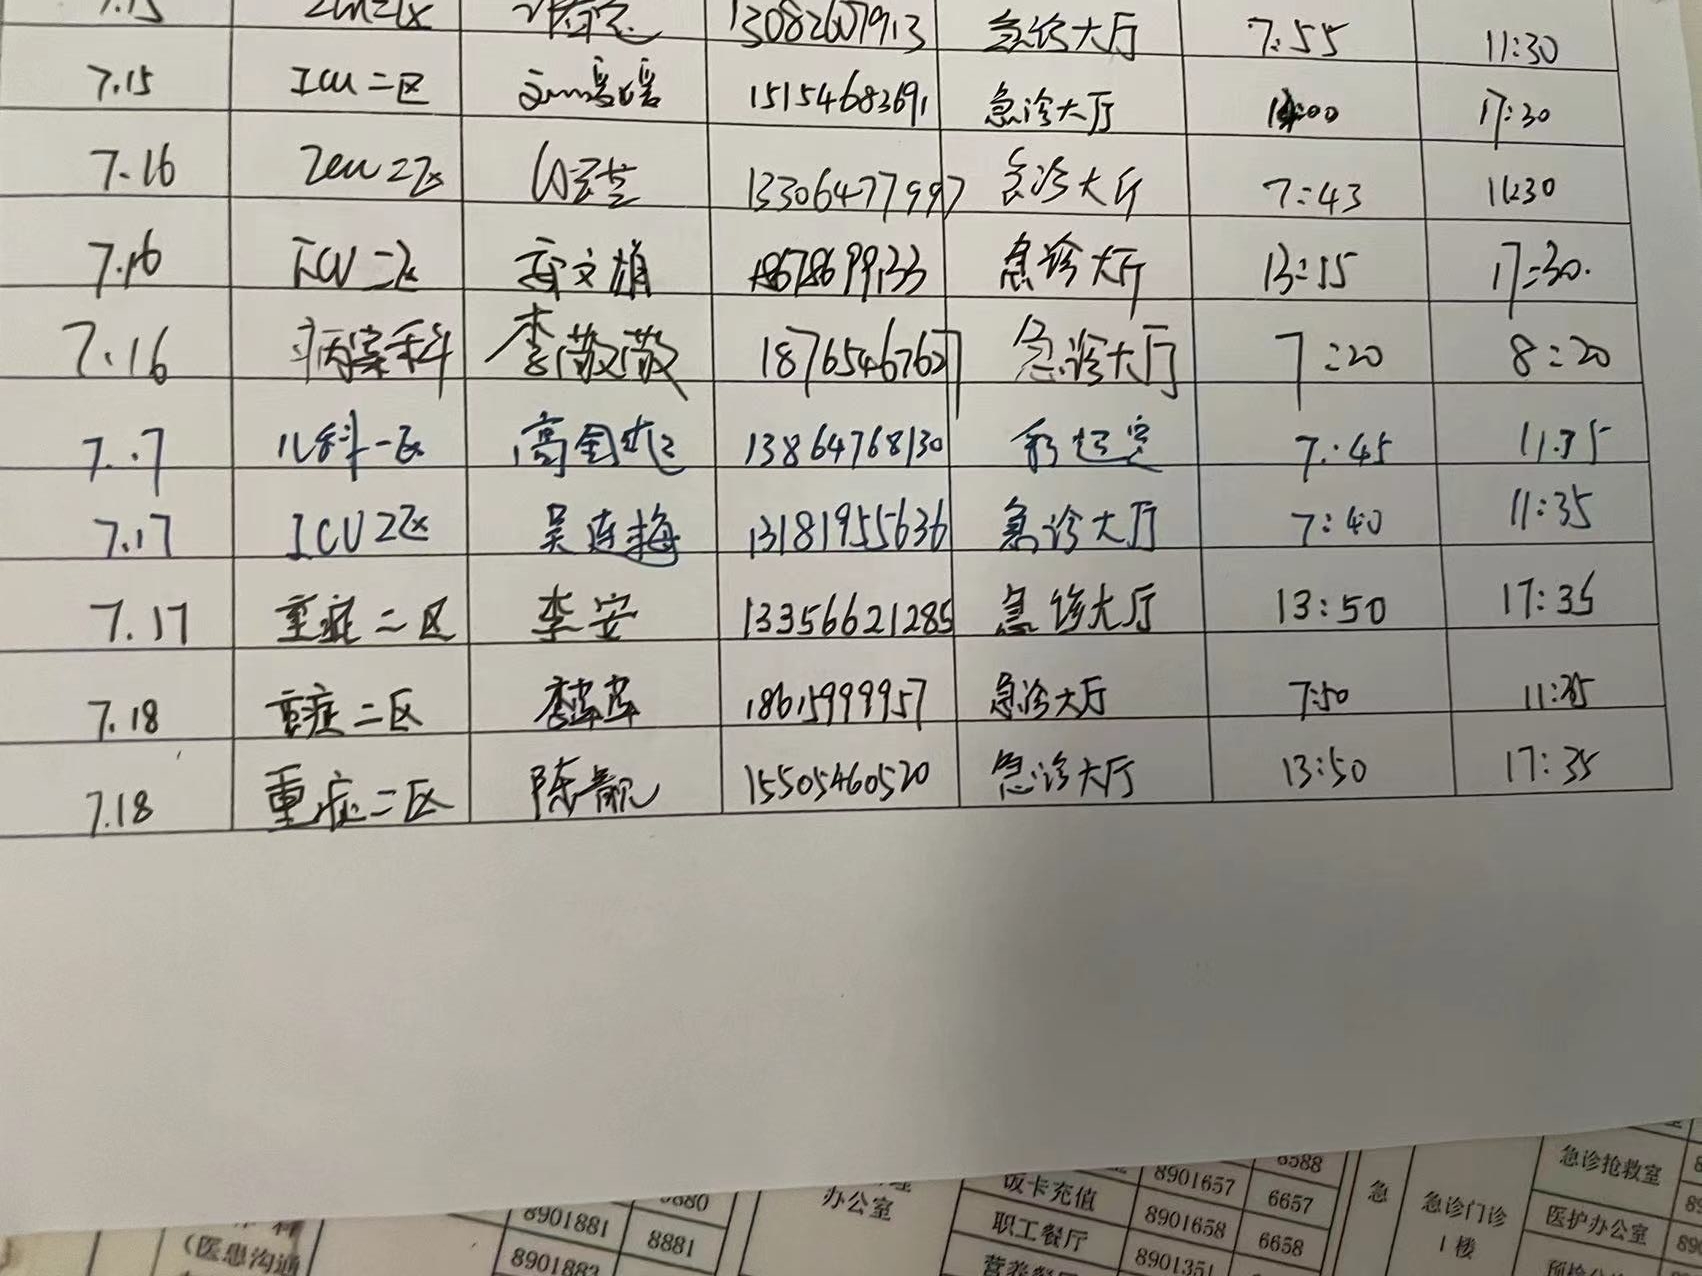 7.15 ICU二区 13082607913 急诊大厅 7:55 11:30
7.15 ICU二区 15154683691 急诊大厅 17:30
7.16 ICU2区 13306477997 急诊大厅 7:43 11:30
7.16 ICU二区 文雄 18678699133 急诊大厅 13:15 17:30.
7.16 病案科 李薇薇 18765467627 急诊大厅 7:20 8:20
7.17 儿科一区 高 13864768130 7:45 11:35
7.17 ICU2区 吴连梅 13181955636 急诊大厅 7:40 11:35
7.17 重症二区 李安 13356621285 急诊大厅 13:50 17:35
7.18 重症二区 18615999957 急诊大厅 7:50 11:35
7.18 重症二区 陈靓 15505460520 急诊大厅 13:50 17:35
6588
急诊抢救室
饭卡充值 8901657 6657
急
办公室
急诊门诊
1楼
医护办公室
8901881 8881
职工餐厅 8901658 6658
(医患沟通
8901883
8901351